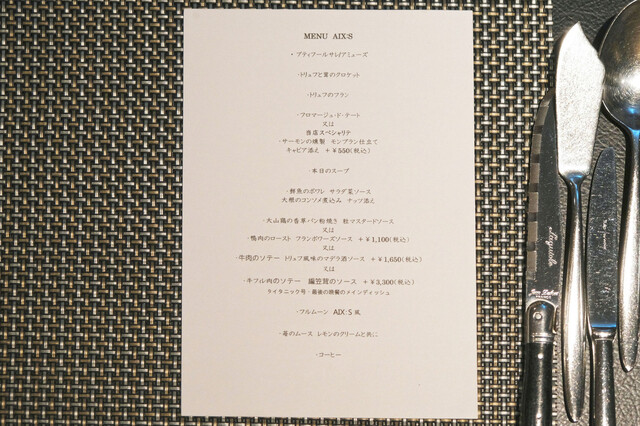 MENU AIX:S
・プティフールサレ/アミューズ
・トリュフと茸のクロケット
・トリュフのフラン
・フロマージュ・ド・テート
又は
当店スペシャリテ
・サーモンの燻製 モンブラン仕立て
キャビア添え +¥550(税込)
・本日のスープ
・鮮魚のポワレ サラダ菜ソース
大根のコンソメ煮込み ナッツ添え
・大山鶏の香草パン粉焼き 粒マスタードソース
又は
・鴨肉のロースト フランボワーズソース +¥1,100(税込)
又は
・牛肉のソテー トリュフ風味のマデラ酒ソース +¥1,650(税込)
又は
・牛フィル肉のソテー 編笠茸のソース +¥3,300(税込)
タイタニック号・最後の晩餐のメインディッシュ
・ブルムーン AIX:S風
・苺のムース レモンのクリームと共に
・コーヒー